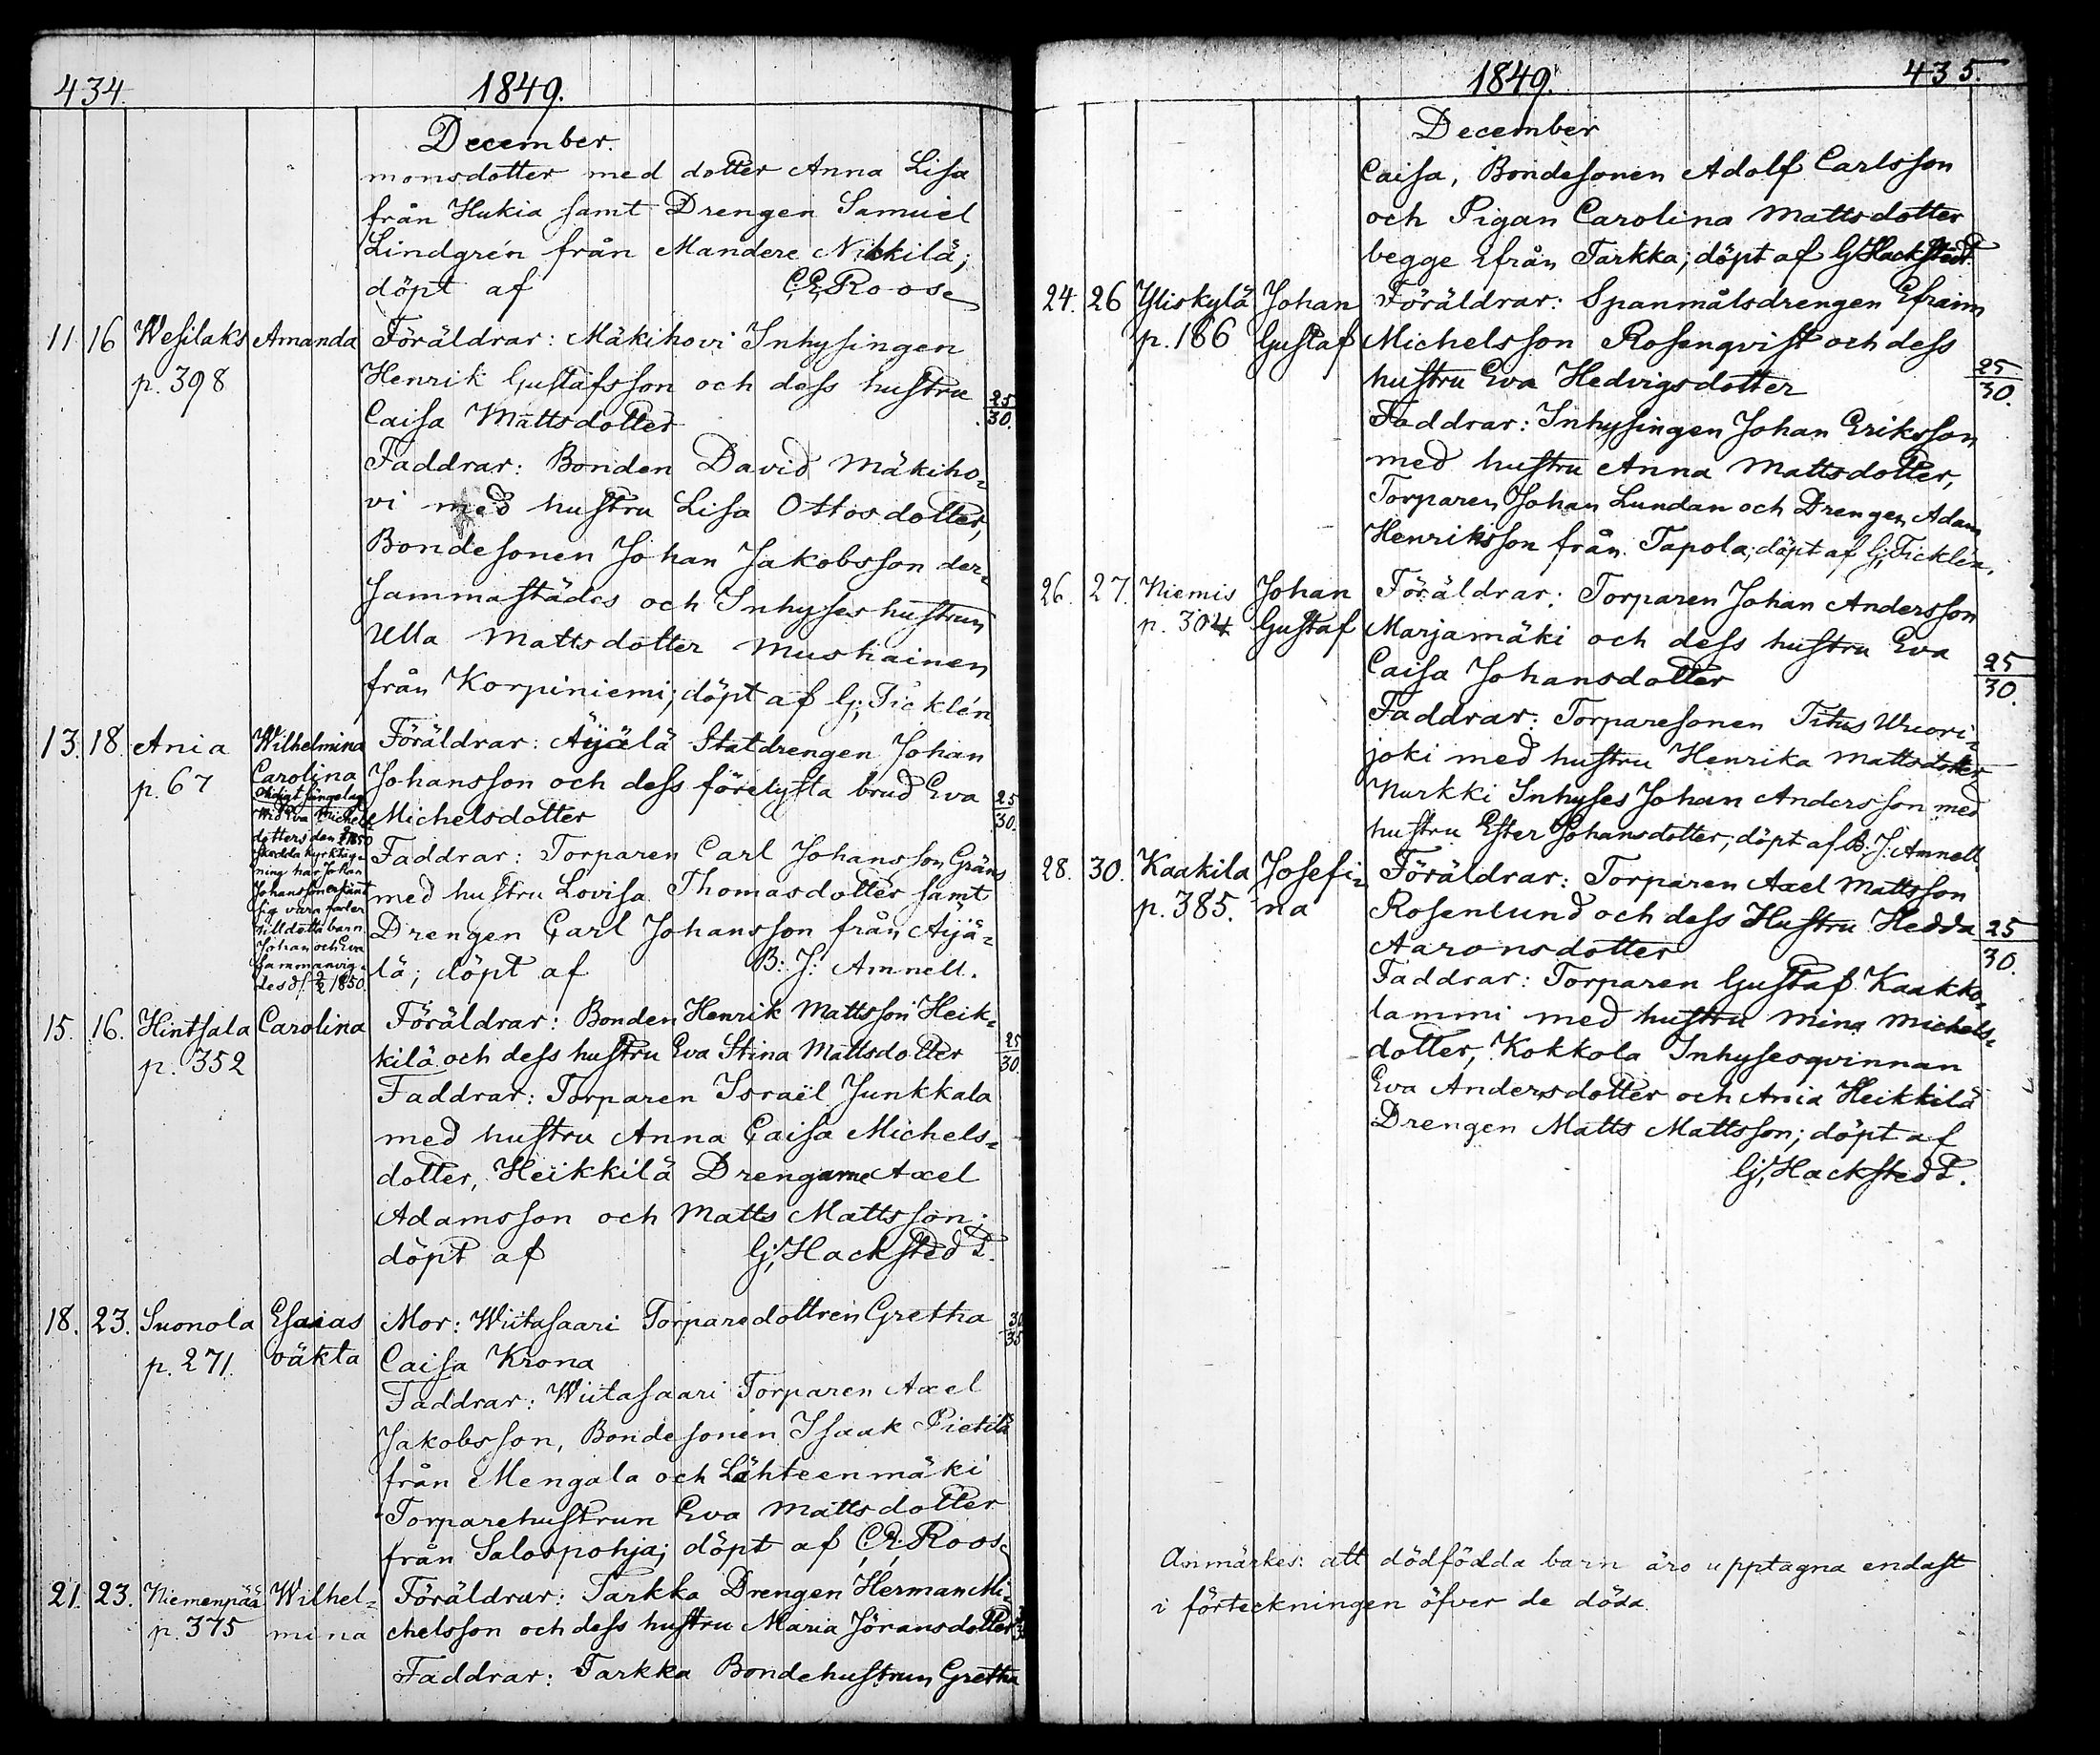 434.
1849.
December.
monsdotter med dotter Anna Lisa
från Hukia samt Drengen Samuel
Lindgrén från Mandere Nikkilä;
döpt af C:E: Roos.
11 16 Wesilaks Amanda Föräldrar: Mäkihovi Inhysingen
p. 398 Henrik Gustafsson och dess hustru 25/30.
Caisa Mattsdotter
Faddrar: Bonden David Mäkiho-
vi med hustru Lisa Ottosdotter,
Bondesonen Johan Jakobsson der-
sammastädes och Inhyseshustrun
Ulla Mattsdotter Mushainen
från Korpiniemi; döpt af G: Ticklén
13. 18. Ania Wilhelmina Föräldrar: Äijälä Statdrengen Johan
p. 67 Carolina Johansson och dess förelysta brud Eva 25/30.
Michelsdotter
Enligt sängelag
wid Eva Michels
dotters den 1850
skedda kyrktag-
ning har Johan
Johansson erkänt
sig vara fader
till detta barn
Johan och Eva
sammanvig-
des d. 1850.
Faddrar: Torparen Carl Johansson Gräns
med hustru Lovisa Thomasdotter samt
Drengen Carl Johansson från Äijä-
lä; döpt af B: J: Amnell.
15. 16. Hintsala Carolina Föräldrar: Bonden Henrik Mattsson Heik-
p. 352 kilä och dess hustru Eva Stina Mattsdotter 25/30.
Faddrar: Torparen Israël Junkkala
med hustru Anna Caisa Michels-
dotter, Heikkilä Drengarne Axel
Adamsson och Matts Mattsson;
döpt af G: Hackstedt.
18. 23. Suonola Esaias Mor: Wiitasaari Torparedottren Gretha 30/35
p. 271. oäkta Caisa Krona
Faddrar: Wiitasaari Torparen Axel
Jakobsson, Bondesonen Isaak Pietilä
från Mengala och Lähteenmäki
Torparehustrun Eva Mattsdotter
från Salospohja; döpt af C:E: Roos.
21. 23. Niemenpää Wilhel- Föräldrar: Tarkka Drengen Herman Mi-
p. 375 mina chelsson och dess hustru Maria Jöransdotter
Faddrar: Tarkka Bondehustrun Gretha
1849.
435.
December
Caisa, Bondesonen Adolf Carlsson
och Pigan Carolina Mattsdotter
begge ifrån Tarkka; döpt af G: Hackstedt.
24. 26 Yliskylä Johan Föräldrar: Spanmålsdrengen Efraim
p. 186 Gustaf Michelsson Rosenqvist och dess
hustru Eva Hedvigsdotter 25/30.
Faddrar: Inhysingen Johan Eriksson
med hustru Anna Mattsdotter,
Torparen Johan Lundan och Drengen Adam
Henriksson från Tapola; döpt af G: Ticklén.
26. 27. Niemis Johan Föräldrar: Torparen Johan Andersson
p. 304 Gustaf Marjamäki och dess hustru Eva
Caisa Johansdotter 25/30.
Faddrar: Torparesonen Titus Wuori-
joki med hustru Henrika Mattsdotter
Nurkki Inhyses Johan Andersson med
hustru Ester Johansdotter; döpt af B: J: Amnell.
28. 30. Kaakila Josefi- Föräldrar: Torparen Axel Mattsson
p. 385. na Rosenlund och dess Hustru Hedda 25/30.
Aaronsdotter
Faddrar: Torparen Gustaf Kaakko-
lammi med hustru Mina Michels-
dotter, Kokkola Inhysesqvinnan
Eva Andersdotter och Ania Heikkilä
Drengen Matts Mattsson; döpt af
G: Hackstedt.
Anmärkes: att dödfödda barn äro upptagna endast
i förteckningen öfver de döda.